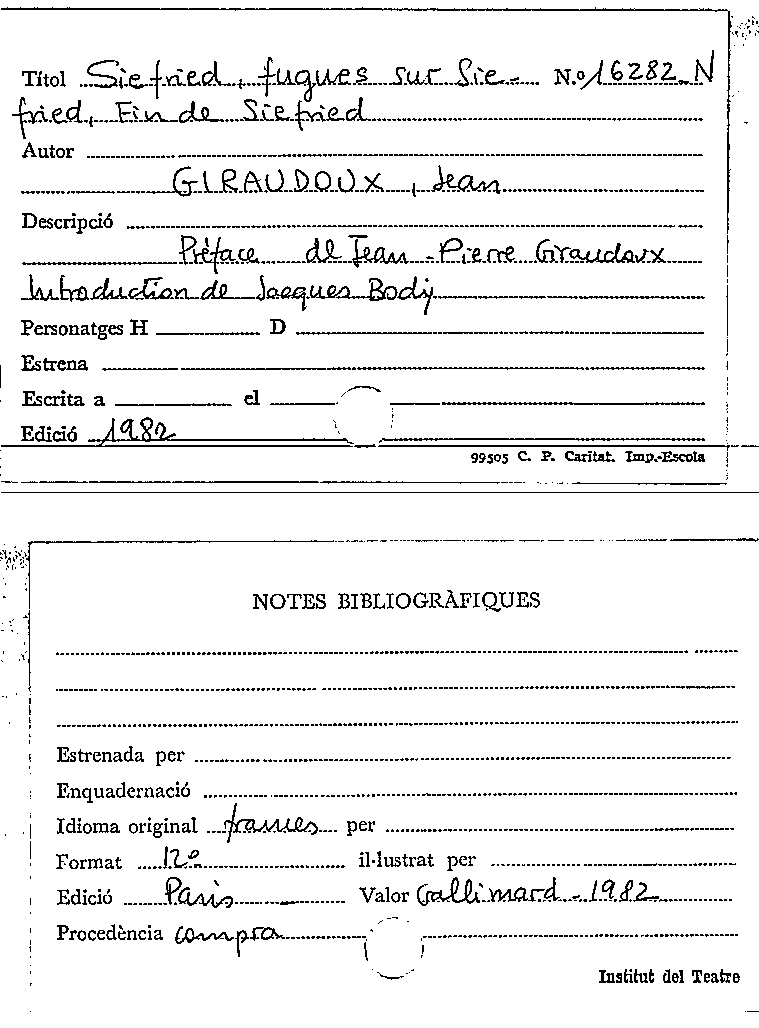 Títol Siefried, fugues sur Sie- N.º 16282-N
fried, Fin de Siefried
Autor
GIRAUDOUX, Jean
Descripció
Préface de Jean-Pierre Giraudoux
Introduction de Jacques Body
Personatges H D
Estrena
Escrita a el
Edició 1982
99505 C. P. Caritat. Imp.-Escola
NOTES BIBLIOGRÀFIQUES
Estrenada per
Enquadernació
Idioma original frances per
Format 12º il·lustrat per
Edició Paris Valor Gallimard - 1982
Procedència compra
Institut del Teatre